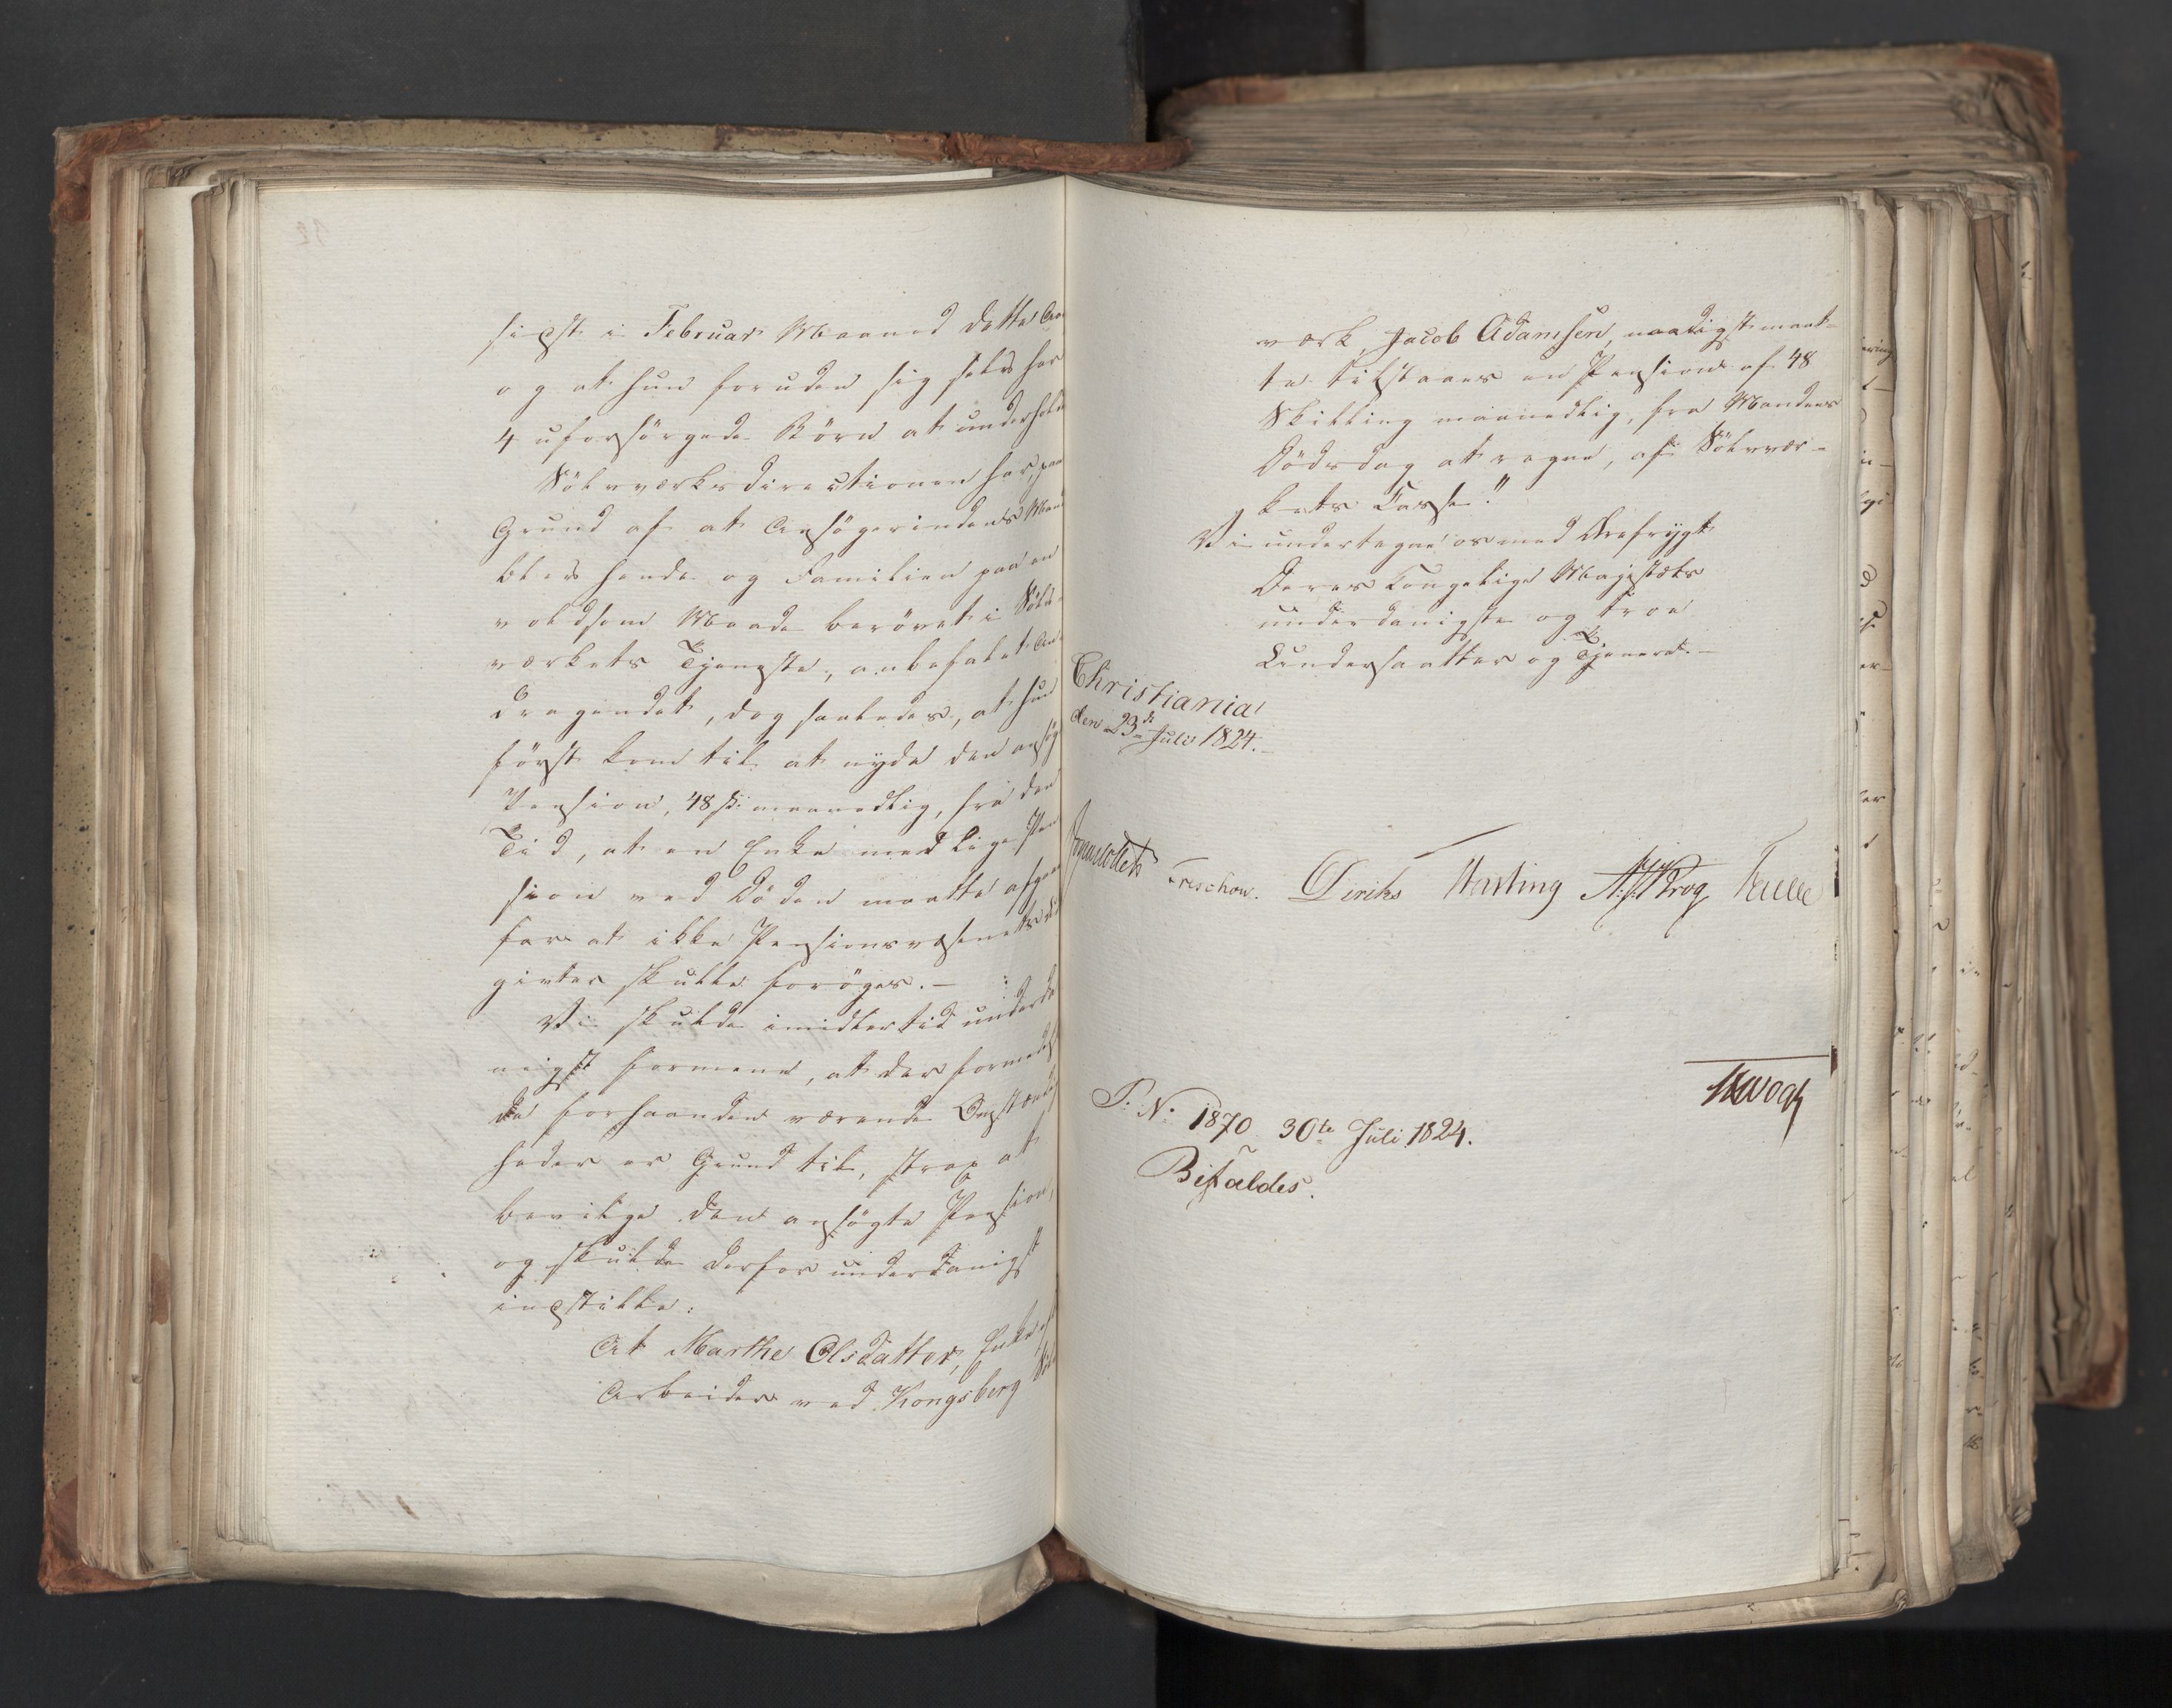 sidst i Februar Maaned dette Aar
og at hun foruden sig selv har
4 uforsörgede Börn at underholde
Sölvværksdirectionen har, paa
Grund af at Ansögerindens Mand
blev hende og Familien paa en
voldsom Maade berövet i Sölv-
værkets Tjeneste, anbefalet An-
dragendet, dog saaledes, at hun
först kom til at nyde den ansögte
Pension, 48 sk: maanedlig, fra den
Tid, at en Enke med lige Pen
sion ved Döden maatte afgaae
for at ikke Pensionsvæsenets Ud
givter skulle foröges. —
Vi skulde imidlertid underda
nigst formene, at der formedelst
de forhaanden værende Omstændig
heder er Grund til, strax at
bevilge den ansögte Pension,
og skulde derfor underdanigst
indstille:
At Marthe Olsdatter, Enke af
Arbeider ved Kongsberg Sölv
værk, Jacob Adamsen, naadigst maat-
te tilstaaes en Pension af 48
Skilling maanedlig, fra Mandens
Dödsdag at regne, af Sölvvær-
kets Casse."
Vi undertegne os med Ærefrygt
Deres Kongelige Majestæts
underdanigste og troe
Undersaatter og Tjenere. —
Christiania
den 23de Juli 1824. —
Treschow. Diriks Hersting A. J. Krog
P. No 1870 30te Juli 1824.
Bifaldes.